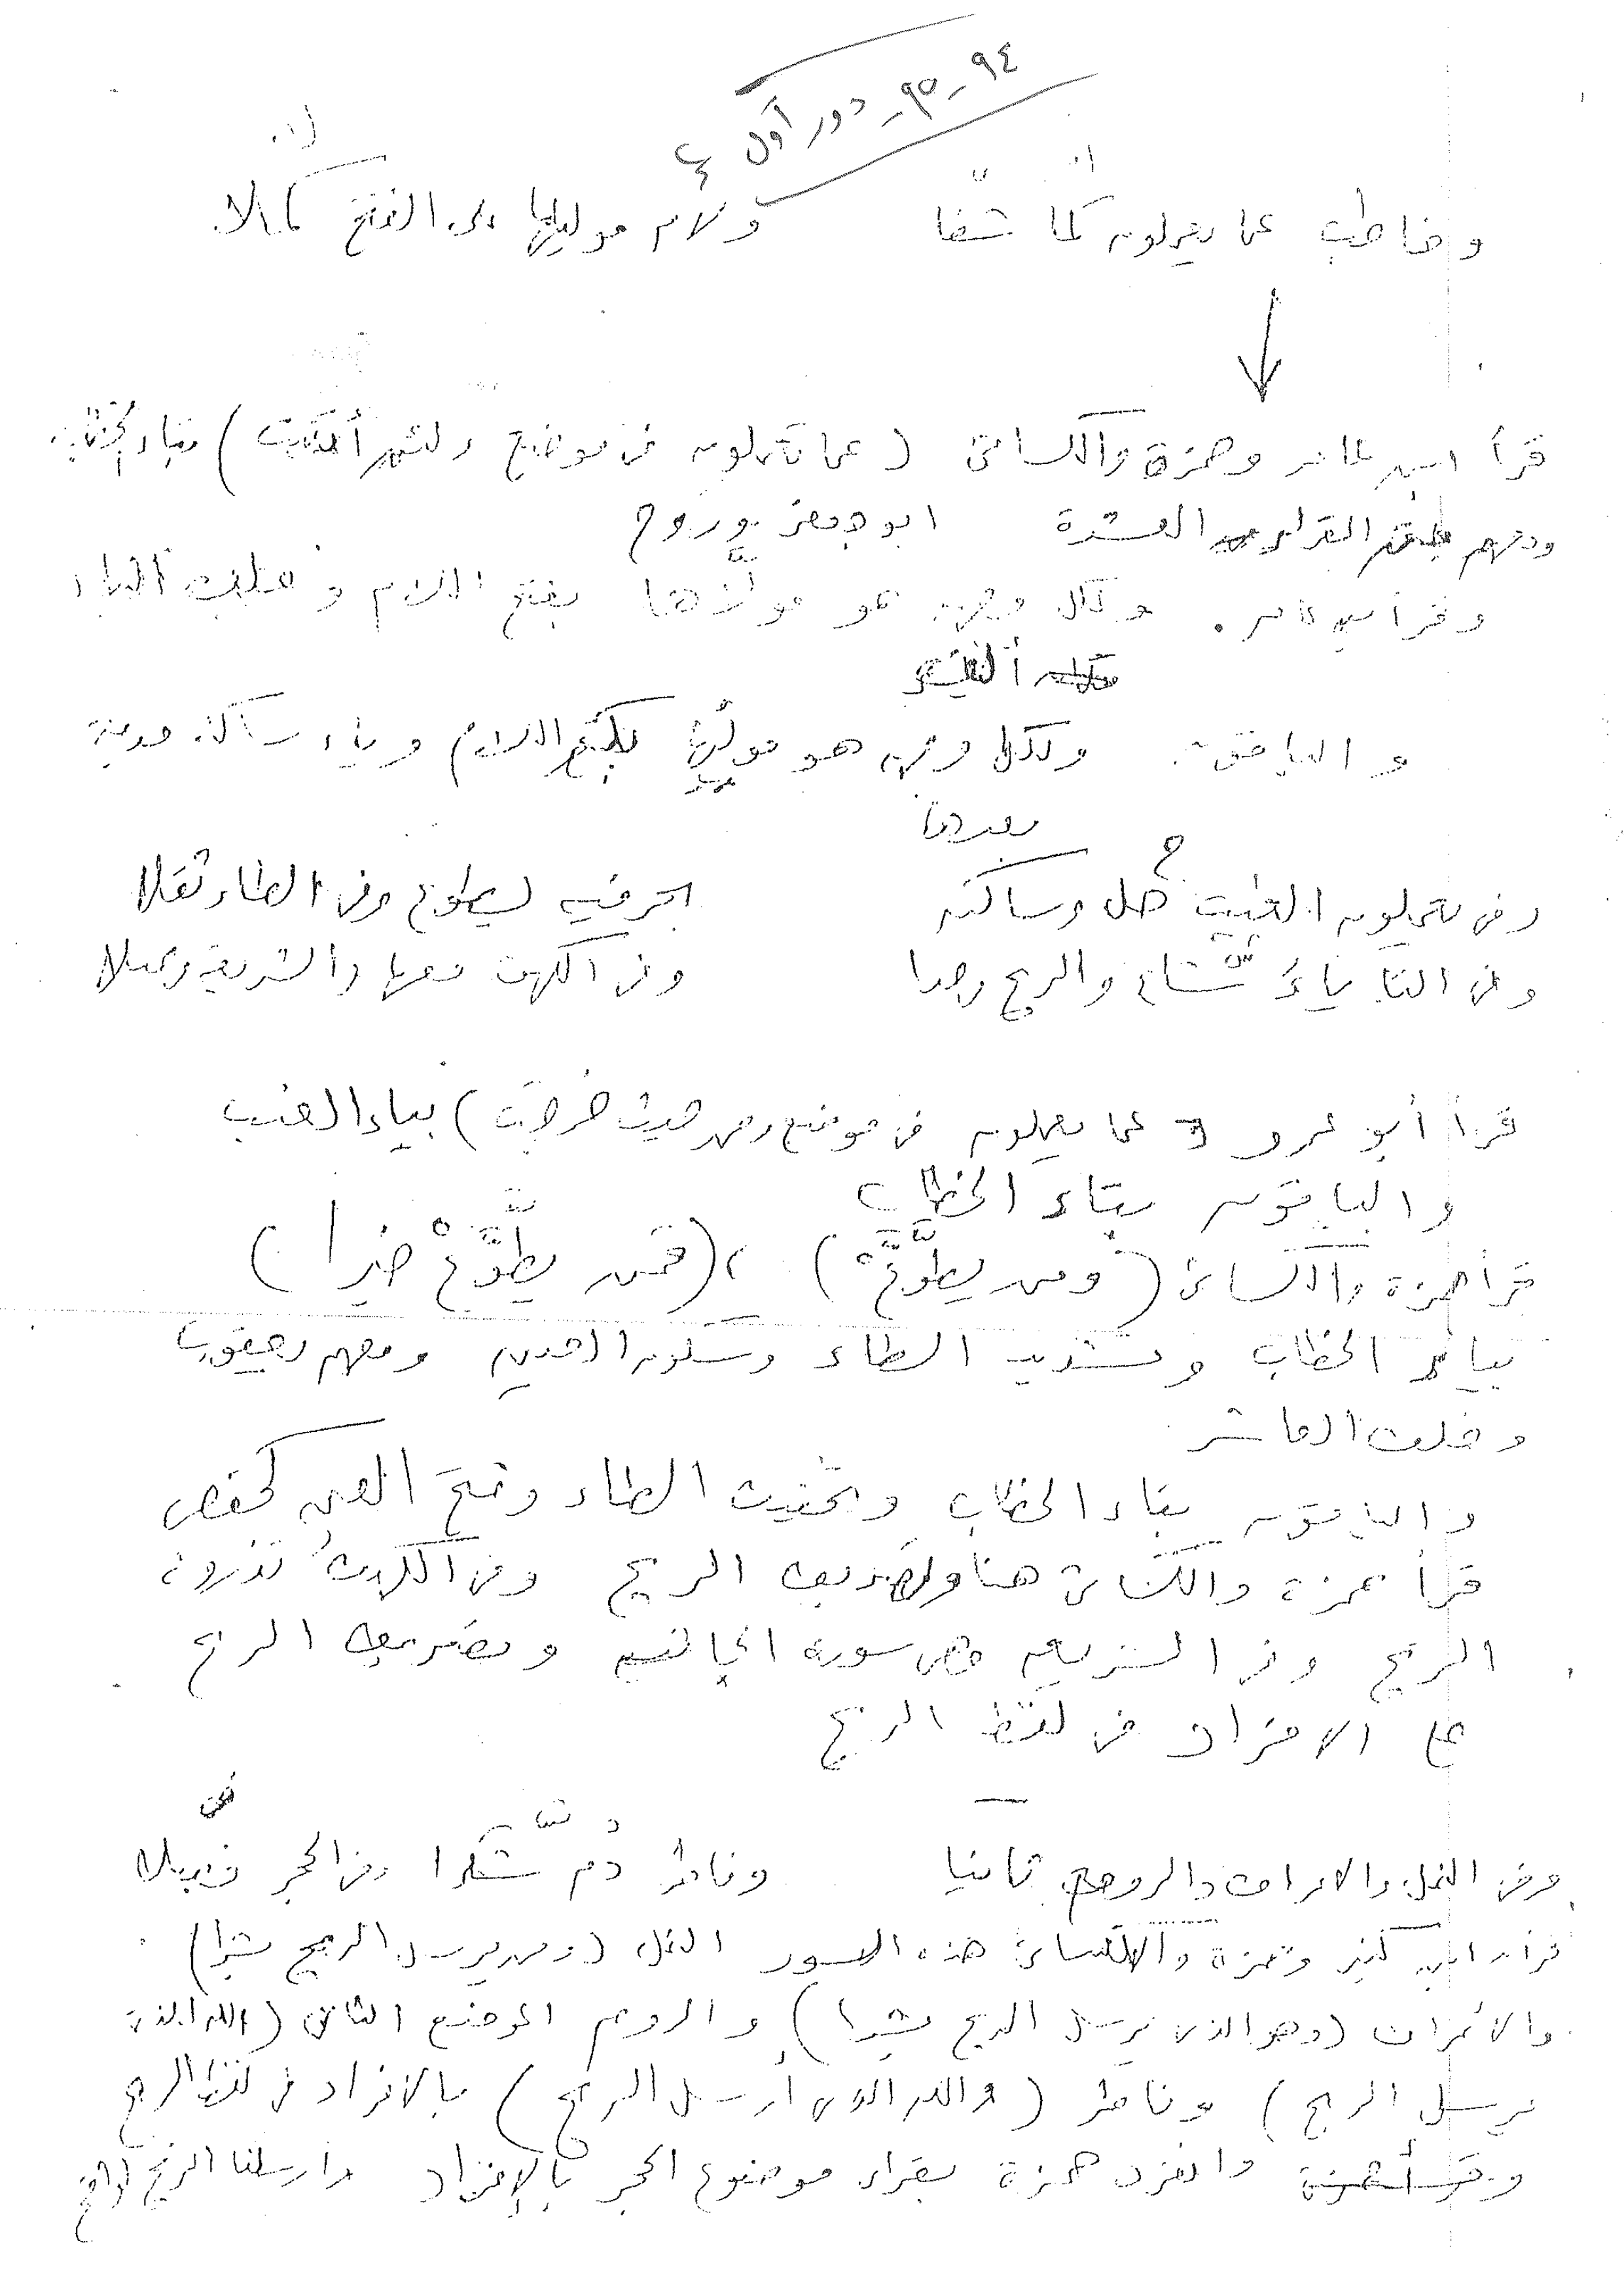 ٩٤ - ٩٥ - دور أول ٤
وخاطب عما يعملون كما شفا ولام موليها على الفتح كملا
قرأ ابن عامر وحمزة والكسائى (عما تعملون فى موضع ولئن أتيت) بتاء الخطاب
ومعهم من القراء العشرة ابو جعفر وروح
وقرأ ابن عامر . ولكل وجهة هو مولَّاها بفتح اللام وقلب الياء
ألفا
والباقون ولكل وجهة هو مولِّيها بكسر اللام وياء ساكنة مدية
بعدها
وفى يعملون الغيب حل وساكن بحرفيه يطوع وفى الطاء ثقلا
وفى التا ياءً شاع والريح وحدا وفى الكهف معها والشريعة وصلا
قرأ أبو عمرو عما يعملون فى موضع ومن حيث خرجت) بياء الغيب
والباقون بتاء الخطاب
قرأ حمزة والكسائى (ومن يطَّوَّعْ) ، (فمن يطَّوَّعْ خيرا)
بياء الخطاب وتشديد الطاء وسكون العين ومعهم يعقوب
وخلف العاشر
والباقون بتاء الخطاب وتخفيف الطاء وفتح العين كحفص
قرأ حمزة والكسائى هنا وتصريف الريح وفى الكهف تذروه
الريح وفى الشريعة وهى سورة الجاثية وتصريف الريح
على الافراد فى لفظ الريح
وفى النمل والاعراف والروم ثانيا وفاطر دم شكرا وفى الحجر فصلا
قرأ ابن كثير وحمزة والكسائى هذه السور النمل (ومن يرسل الريح نشرا)
والأعراف (وهو الذى يرسل الريح نشرا) والروم الموضع الثانى (الله الذى
يرسل الريح) وفاطر (والله الذى أرسل الريح) بالافراد فى لفظ الريح
وانفرد حمزة بقراءة موضوع الحجر بالإفراد وارسلنا الريح لواقح